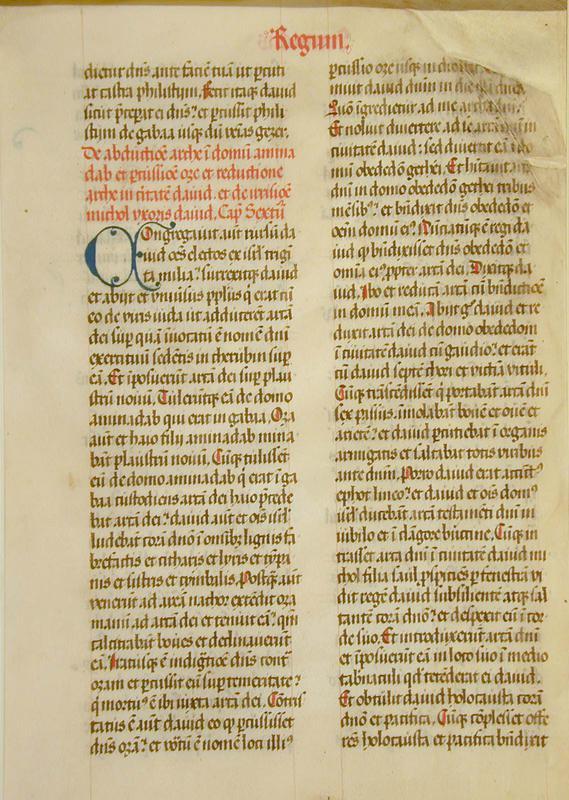 Regum.
dietur dñs ante faciē tuā ut ꝑcuti
at castra philistijm. Fecit itaqꝫ dauid
sicut p̃cepat ei dñs: et ꝑcussit phili
stijm de gabaa usqꝫ dū venias gezer.
De abductiōe arche ī domū amina
dab et ꝑcussiōe oze et reductione
arche in ciuitatē dauid. et de irrisiōe
michol vxoris dauid. Cap̃ Sextū
Congregauit aūt rursū da
uid oēs electos ex isrl̃ trigī
ta milia: surrexitqꝫ dauid
et abijt et vniuersus pplūs q̇ erat cū
eo de viris iuda ut adducerēt archā
dei suꝑ quā inuocatū ē nomē dñi
exercituū sedētis in cherubin suꝑ
eā. Et īposuerūt archā dei suꝑ plau
strū nouū. Tuleruntqꝫ eā de domo
aminadab qui erat in gabaa. Oza
aūt et haio filij aminadab mina
bāt plaustrū nouū. Cūqꝫ tulissēt
eū de domo aminadab q̇ erat ī ga
baa custodiens archā dei haio p̃cede
bat archā dei: dauid aūt et ōis isrl̃
ludebāt corā dnō ī omībꝫ lignis fa
brefactis et citharis et lyris et tympa
nis et sistris et cymbalis. Postqꝫ aūt
venerūt ad areā nachor extēdit oza
manū ad archā dei et tenuit eā: qm̃
calcitrabāt boues et declinauerūt
eā. Iratusqꝫ ē indigtiōe dñs cont̃
ozam et ꝑcussit eū suꝑ temeritate:
q̇ mortuus ē ibi iuxta archā dei. Cōtris
tatus ē aūt dauid eo qꝫ ꝑcussisset
dñs ozā: et vocatū ē nomē loci illiꝰ
ꝑcussio oze usqꝫ in diem
muit dauid dnūm in die illa dicens
Quō īgredietur ad me archa
Et noluit diuertere ad se archā dñi in
ciuitatē dauid: sed diuertit eā ī do
mū obededō gethei. Et hītauit archa
dñi in domo obededō gethei tribus
mēsibꝫ: et bn̄dixit dñs obededō et
oēm domū eiꝰ. Nūciatūqꝫ ē regi da
uid qꝫ bn̄dixisset dñs obededō et
omīa eiꝰ ꝓpter archā dei. Dixitqꝫ da
uid. Ibo et reducā archā cū bn̄dictiōe
in domū meā. Abijt gͦ dauid et re
duxit archā dei de domo obededom
ī ciuitatē dauid cū gaudio: et erāt
cū dauid septē chori et victīa vituli.
Cūqꝫ trāscēdissēt q̇ portabāt archā dñi
sex passus. īmolabāt bouē et ouē et
arietē: et dauid ꝑcutiebat ī organis
armigatis et saltabat totis viribus
ante dnūm. Porro dauid erat accīctꝰ
ephot lineo: et dauid et ōis domꝰ
isrl̃ ducebāt archā testamēti dñi in
iubilo et ī clāgore buccine. Cūqꝫ in
trasset archa dñi ī ciuitatē dauid mi
chol filia saul ꝓspiciēs ꝑ fenestrā vi
dit regē dauid subsiliēnte atqꝫ sal
tantē corā dnō: et despexit eū ī cor
de suo. Et introduxerūt archā dñi
et īposuerūt eā in loco suo ī medio
tabnaculi qd̃ tetēderat ei dauid.
Et obtulit dauid holocausta corā
dnō et pacifica. Cūqꝫ cōplesset offe
rēs holocausta et pacifica bn̄dixit